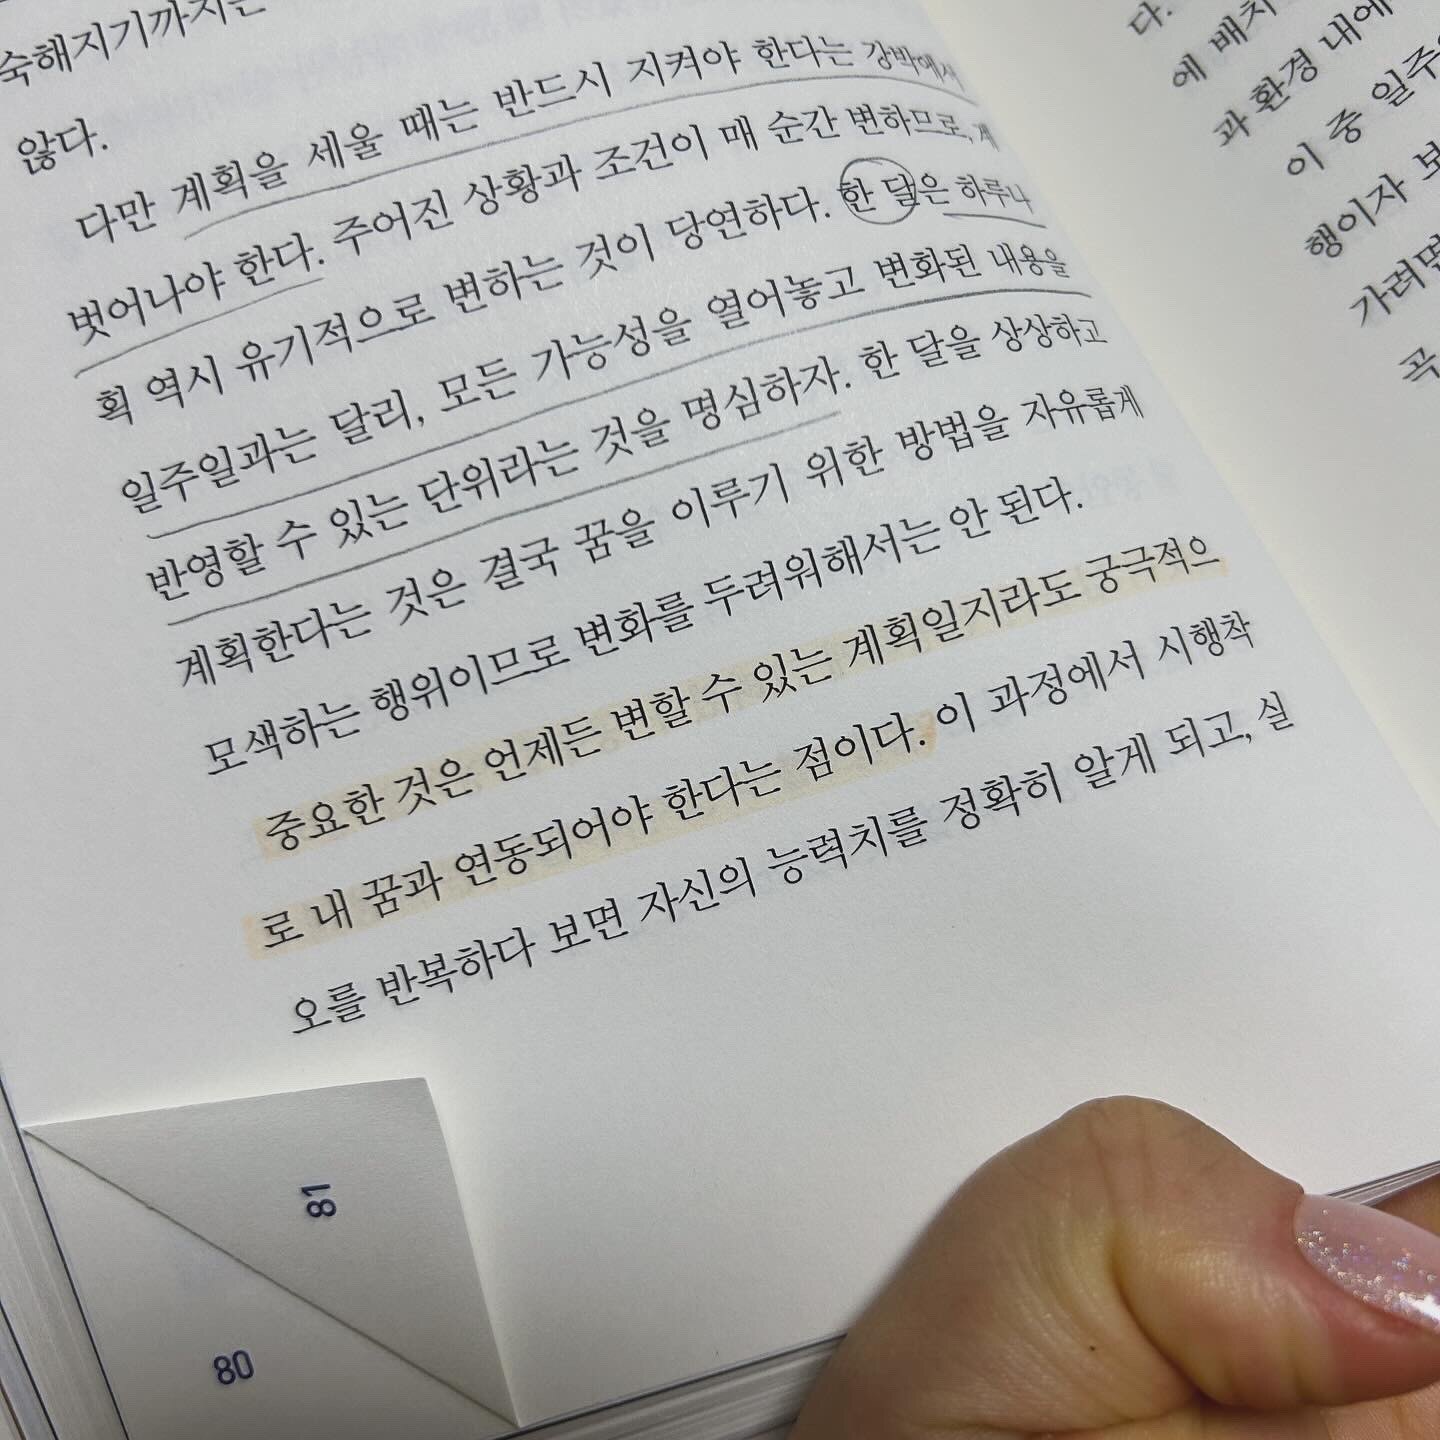 숙해지기까지는
않다.
다만 계획을 세울 때는 반드시 지켜야 한다는 강박에서
벗어나야 한다. 주어진 상황과 조건이 매 순간 변하므로, 계
획 역시 유기적으로 변하는 것이 당연하다. 한 달은 하루나
일주일과는 달리, 모든 가능성을 열어놓고 변화된 내용을
반영할 수 있는 단위라는 것을 명심하자. 한 달을 상상하고
계획한다는 것은 결국 꿈을 이루기 위한 방법을 자유롭게
모색하는 행위이므로 변화를 두려워해서는 안 된다.
중요한 것은 언제든 변할 수 있는 계획일지라도 궁극적으
로 내 꿈과 연동되어야 한다는 점이다. 이 과정에서 시행착
오를 반복하다 보면 자신의 능력치를 정확히 알게 되고, 실
81
80
다.
에 배치
과 환경 내에
이 중 일주
행이자 보
가려면
곡